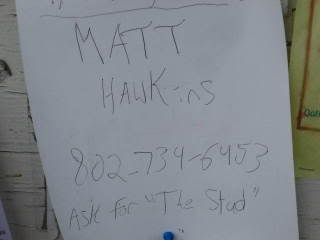 MATT
HAWKins
802-734-6453
Ask for "The Stud"